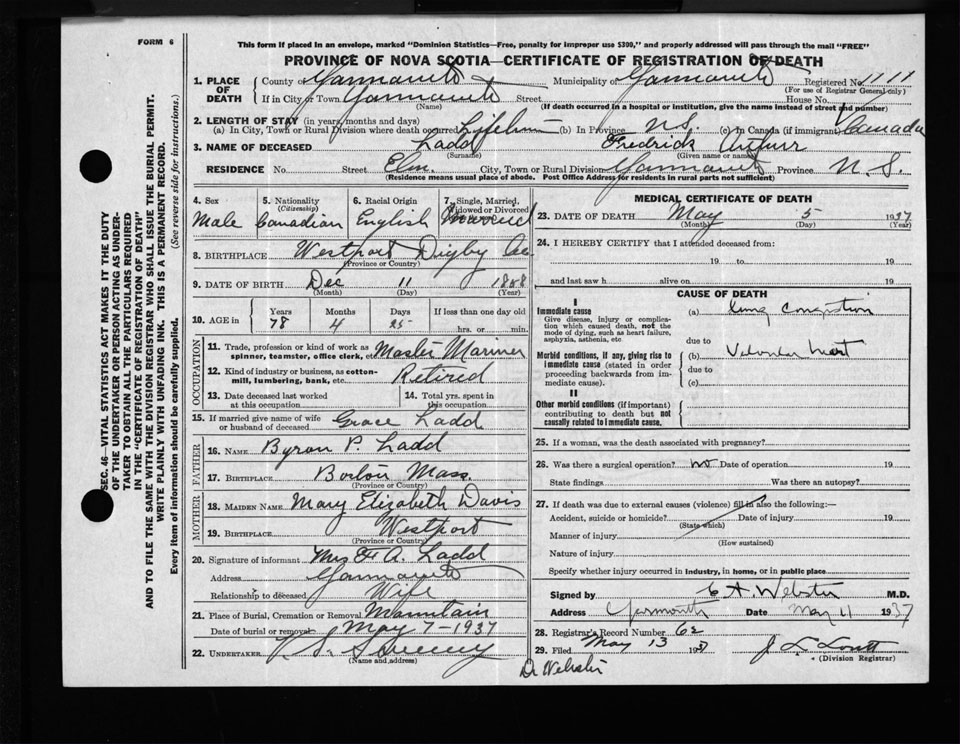 FORM 6
This form if placed in an envelope, marked "Dominion Statistics—Free, penalty for improper use $300," and properly addressed will pass through the mail "FREE"
PROVINCE OF NOVA SCOTIA—CERTIFICATE OF REGISTRATION OF DEATH
1. PLACE OF DEATH
County of Yarmouth Municipality of Yarmouth Registered No. 1111
(For use of Registrar General only)
If in City or Town Yarmouth Street House No.
(Name) (If death occurred in a hospital or institution, give name instead of street and number)
2. LENGTH OF STAY (in years, months and days)
(a) In City, Town or Rural Division where death occurred Lifetime (b) In Province N.S. (c) In Canada (if immigrant) Canada
3. NAME OF DECEASED Ladd Fredrick Arthur
(Surname) (Given name or names)
RESIDENCE No. Street Elm. City, Town or Rural Division Yarmouth Province N.S.
(Residence means usual place of abode. Post Office Address for residents in rural parts not sufficient)
4. Sex Male
5. Nationality (Citizenship) Canadian
6. Racial Origin English
7. Single, Married, Widowed or Divorced Married
8. BIRTHPLACE Westport Digby Co.
(Province or Country)
9. DATE OF BIRTH Dec 11 1858
(Month) (Day) (Year)
10. AGE in Years 78 Months 4 Days 25 If less than one day old
hrs. or min.
OCCUPATION
11. Trade, profession or kind of work as spinner, teamster, office clerk, etc. Master Mariner
12. Kind of industry or business, as cotton-mill, lumbering, bank, etc. Retired
13. Date deceased last worked at this occupation
14. Total yrs. spent in this occupation
15. If married give name of wife or husband of deceased Grace Ladd
FATHER
16. NAME Byron P. Ladd
17. BIRTHPLACE Boston Mass.
(Province or Country)
MOTHER
18. MAIDEN NAME Mary Elizabeth Davis
19. BIRTHPLACE Westport
(Province or Country)
20. Signature of informant Mrs F. A. Ladd
Address Yarmouth
Relationship to deceased Wife
21. Place of Burial, Cremation or Removal Mountain
Date of burial or removal May 7-1937
22. UNDERTAKER V. S. Sweeny
(Name and address)
MEDICAL CERTIFICATE OF DEATH
23. DATE OF DEATH May 5 1937
(Month) (Day) (Year)
24. I HEREBY CERTIFY that I attended deceased from:
19 to 19
and last saw h alive on 19
CAUSE OF DEATH
I
Immediate cause
Give disease, injury or complication which caused death, not the mode of dying, such as heart failure, asphyxia, asthenia, etc
(a) Lung Congestion
due to
Morbid conditions, if any, giving rise to immediate cause (stated in order proceeding backwards from immediate cause).
(b) Valvular heart
due to
(c)
II
Other morbid conditions (if important) contributing to death but not causally related to immediate cause.
25. If a woman, was the death associated with pregnancy?
26. Was there a surgical operation? no Date of operation 19
State findings Was there an autopsy?
27. If death was due to external causes (violence) fill in also the following:—
Accident, suicide or homicide? Date of injury 19
(State which)
Manner of injury
(How sustained)
Nature of injury
Specify whether injury occurred in industry, in home, or in public place
Signed by C. A. Webster M.D.
Address Yarmouth Date May 11 1937
28. Registrar's Record Number 62
29. Filed May 13 193
(Division Registrar)
Dr Webster
SEC. 46—VITAL STATISTICS ACT MAKES IT THE DUTY
OF THE UNDERTAKER OR PERSON ACTING AS UNDER-
TAKER TO OBTAIN ALL THE PARTICULARS REQUIRED
IN THE "CERTIFICATE OF REGISTRATION OF DEATH"
AND TO FILE THE SAME WITH THE DIVISION REGISTRAR WHO SHALL ISSUE THE BURIAL PERMIT.
WRITE PLAINLY WITH UNFADING INK. THIS IS A PERMANENT RECORD.
Every item of information should be carefully supplied. (See reverse side for instructions.)